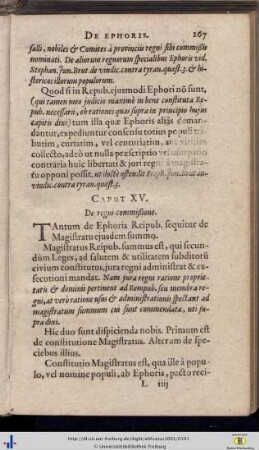 DE EPHORIS. 167
salli, nobiles & Comites à provinciis regni sibi commissis
nominati. De aliorum regnorum specialibus Ephoris vid.
Stephan. Jun. Brut. de vindic. contra tyran. quæst. 3. & hi-
storicos illorum populorum.
Quod si in Repub. ejusmodi Ephori nõ sunt,
(qui tamen meo judicio maximè in bene constituta Re-
pub. necessarii, ob rationes quas supra in principio hujus
capitis dixi) tum illa quæ Ephoris aliàs deman-
dantur, expediuntur consensu totius populi tri-
butim, curiatim, vel centuriatim, aut viritim
collecto, adeò ut nulla præscriptio vel usurpatio
contraria huic libertati & juri regni à magistra-
tu opponi possit. ut doctè ostendit Steph. Jun. Brut. in
vindic. contra tyran. quæst. 3.
CAPUT XV.
De regno commissione.
TAntum de Ephoris Reipub. sequitur de
Magistratu ejusdem summo.
Magistratus Reipub. summus est, qui secun-
dùm Leges, ad salutem & utilitatem subditorũ
civium constitutus, jura regni administrat & ex-
ecutioni mandat. Nam jura regni ratione proprie-
tatis & dominii pertinent ad Rempub. seu membra re-
gni, at verò ratione usus & administrationis spectant ad
magistratum summum cui sunt commendata, uti su-
pra dixi.
Hic duo sunt dispicienda nobis. Primum est
de constitutione Magistratus. Alterum de spe-
ciebus illius.
Constitutio Magistratus est, qua ille à popu-
lo, vel nomine populi, ab Ephoris, pacto reci-
L iiij